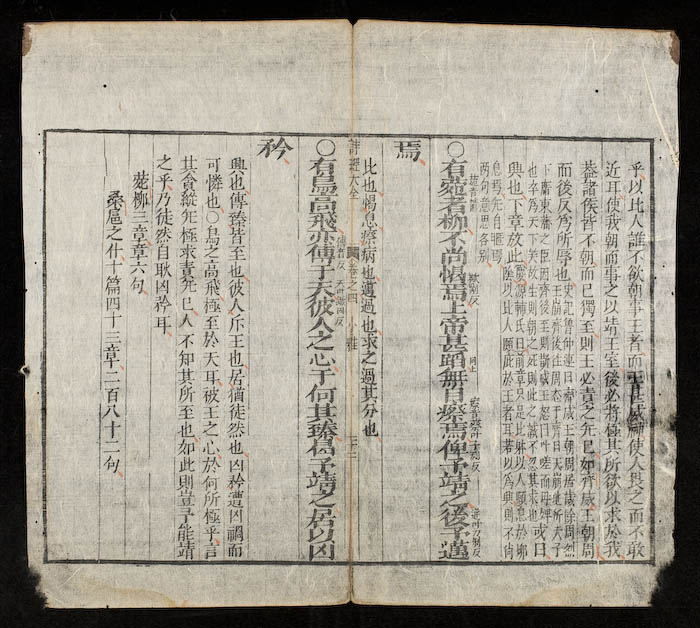 乎以比人誰不欲朝事王者而王甚威神使人畏之而不敢
近耳使我朝而事之以靖王室後必將極其所欲以求於我
蓋諸侯皆不朝而已獨至則王必責之先已如齊威王朝周
而後反為所辱也史記魯仲連曰齊威王朝周居歲餘周烈
王崩齊後往周怒赴于齊曰天崩地坼天子
下席東藩之臣因齊後至則斮威王怒曰叱嗟而母婢也
卒為天下笑
或曰
興也下章放此
息焉
兩句意思各別
○有菀者柳不尚愒焉上帝甚蹈無自瘵焉俾予靖之後予邁
焉
比也愒息瘵病也邁過也求之過其分也
詩經大全 卷之十四 小雅
○有鳥高飛亦傅于天彼人之心于何其臻曷予靖之居以凶
矜
興也傅臻皆至也彼人斥王也居猶徒然也凶矜遭凶禍而
可憐也○鳥之高飛極至於天耳彼王之心於何所極乎言
其貪縱無極求責無已人不知其所至也如此則豈予能靖
之乎乃徒然自取凶矜耳
菀柳三章章六句
桑扈之什十篇四十三章二百八十二句